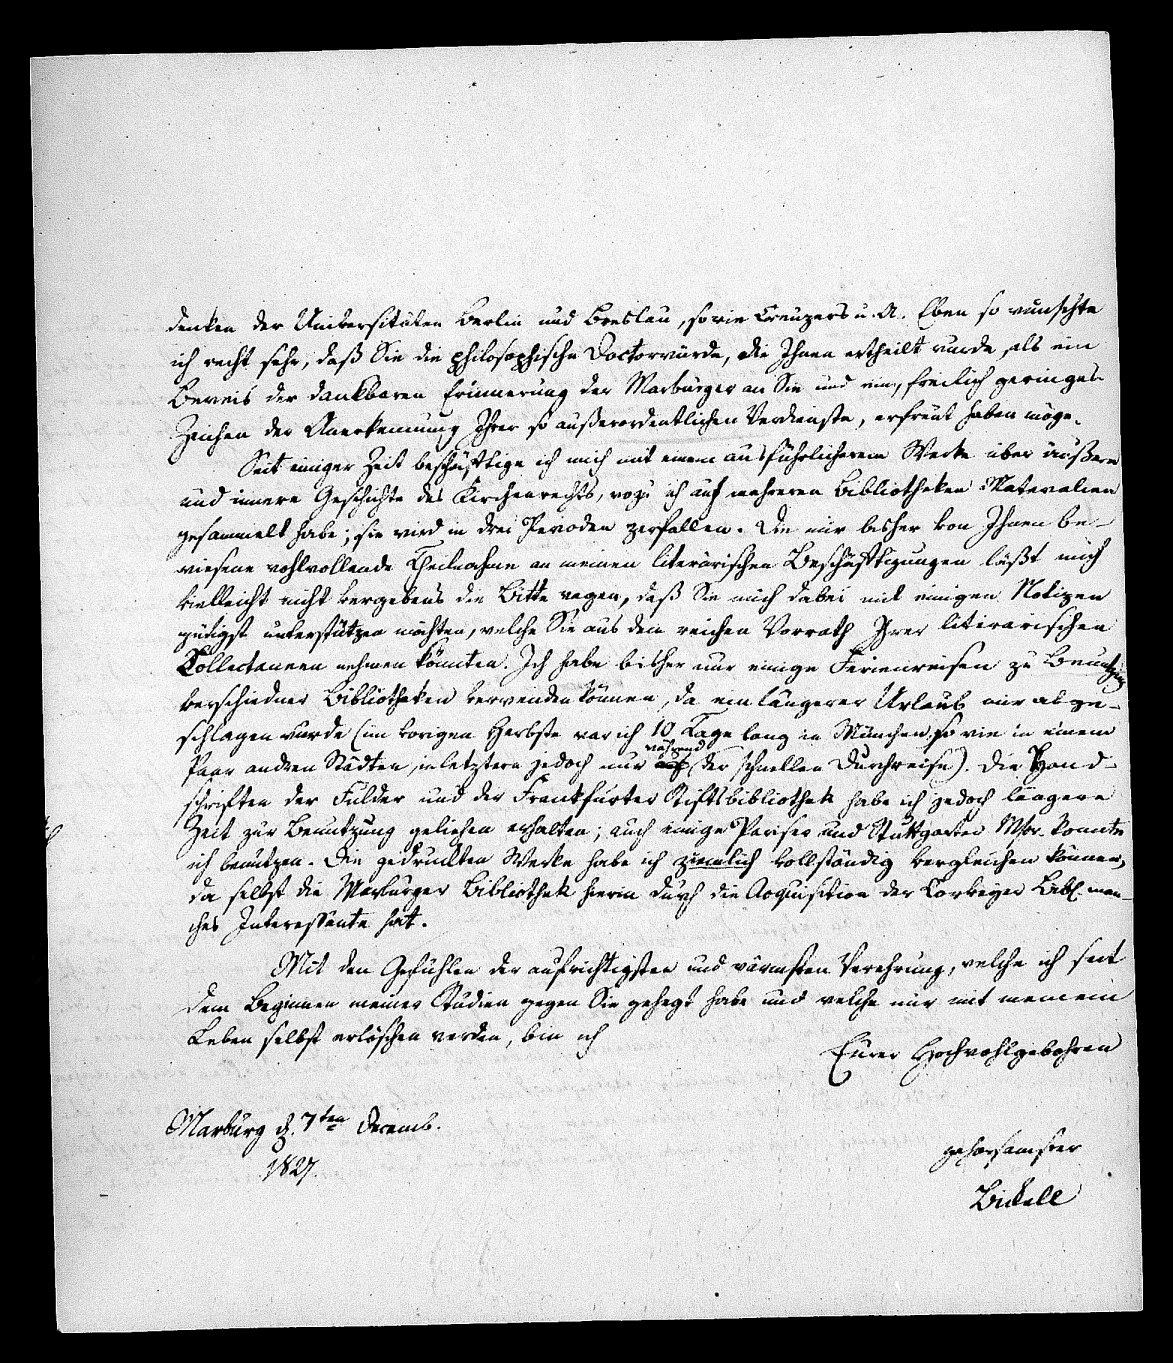 denken der Universitäten Berlin und Breslau, sowie Creuzers u. A. Eben so wünschte
ich recht sehr, daß Sie die philosophische Doctorwürde, die Ihnen ertheilt wurde, als ein
Beweis der dankbaren Erinnerung der Marburger an Sie und ein, freilich geringes
Zeichen der Anerkennung Ihrer so außerordentlichen Verdienste, erfreut haben möge.
Seit einiger Zeit beschäftige ich mich mit einem ausführlicheren Werke über äußere
und innere Geschichte des Kirchenrechts, wozu ich auf mehreren Bibliotheken Materialien
gesammelt habe; sie wird in drei Perioden zerfallen. Die mir bisher von Ihnen be-
wiesene wohlwollende Theilnahme an meinen literärischen Beschäftigungen läßt mich
vielleicht nicht vergebens die Bitte wagen, daß Sie mich dabei mit einigen Notizen
gütigst unterstützen möchten, welche Sie aus dem reichen Vorrath Ihrer literarischen
Collectaneen nehmen könnten. Ich habe bisher nur einige Ferienreisen zu Benutzung
verschiedner Bibliotheken verwenden können, da ein längerer Urlaub mir abge-
schlagen wurde (im vorigen Herbste war ich 10 Tage lang in München, so wie in einem
Paar andren Städten, in letztern jedoch nur während der schnellen Durchreise). Die Hand-
schriften der Fulder und der Frankfurter Stiftsbibliothek habe ich jedoch längere
Zeit zur Benutzung geliehen erhalten; auch einige Pariser und Stuttgarter Mscr. konnte
ich benutzen. Die gedruckten Werke habe ich ziemlich vollständig vergleichen können,
da selbst die Marburger Bibliothek hierin durch die Acquisition der Corveyer Bibl. man-
ches Interessante hat.
Mit den Gefühlen der aufrichtigsten und wärmsten Verehrung, welche ich seit
dem Beginnen meiner Studien gegen Sie gehegt habe und welche nur mit meinem
Leben selbst erlöschen werden, bin ich
Eurer Hochwohlgebohren
Marburg d. 7ten Decemb.
1827.
gehorsamster
Bickell